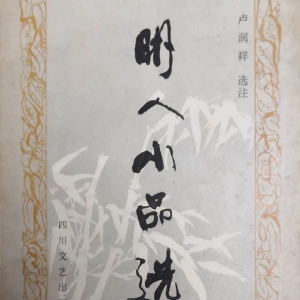 卢润祥 选注
明人小品选
四川文艺出